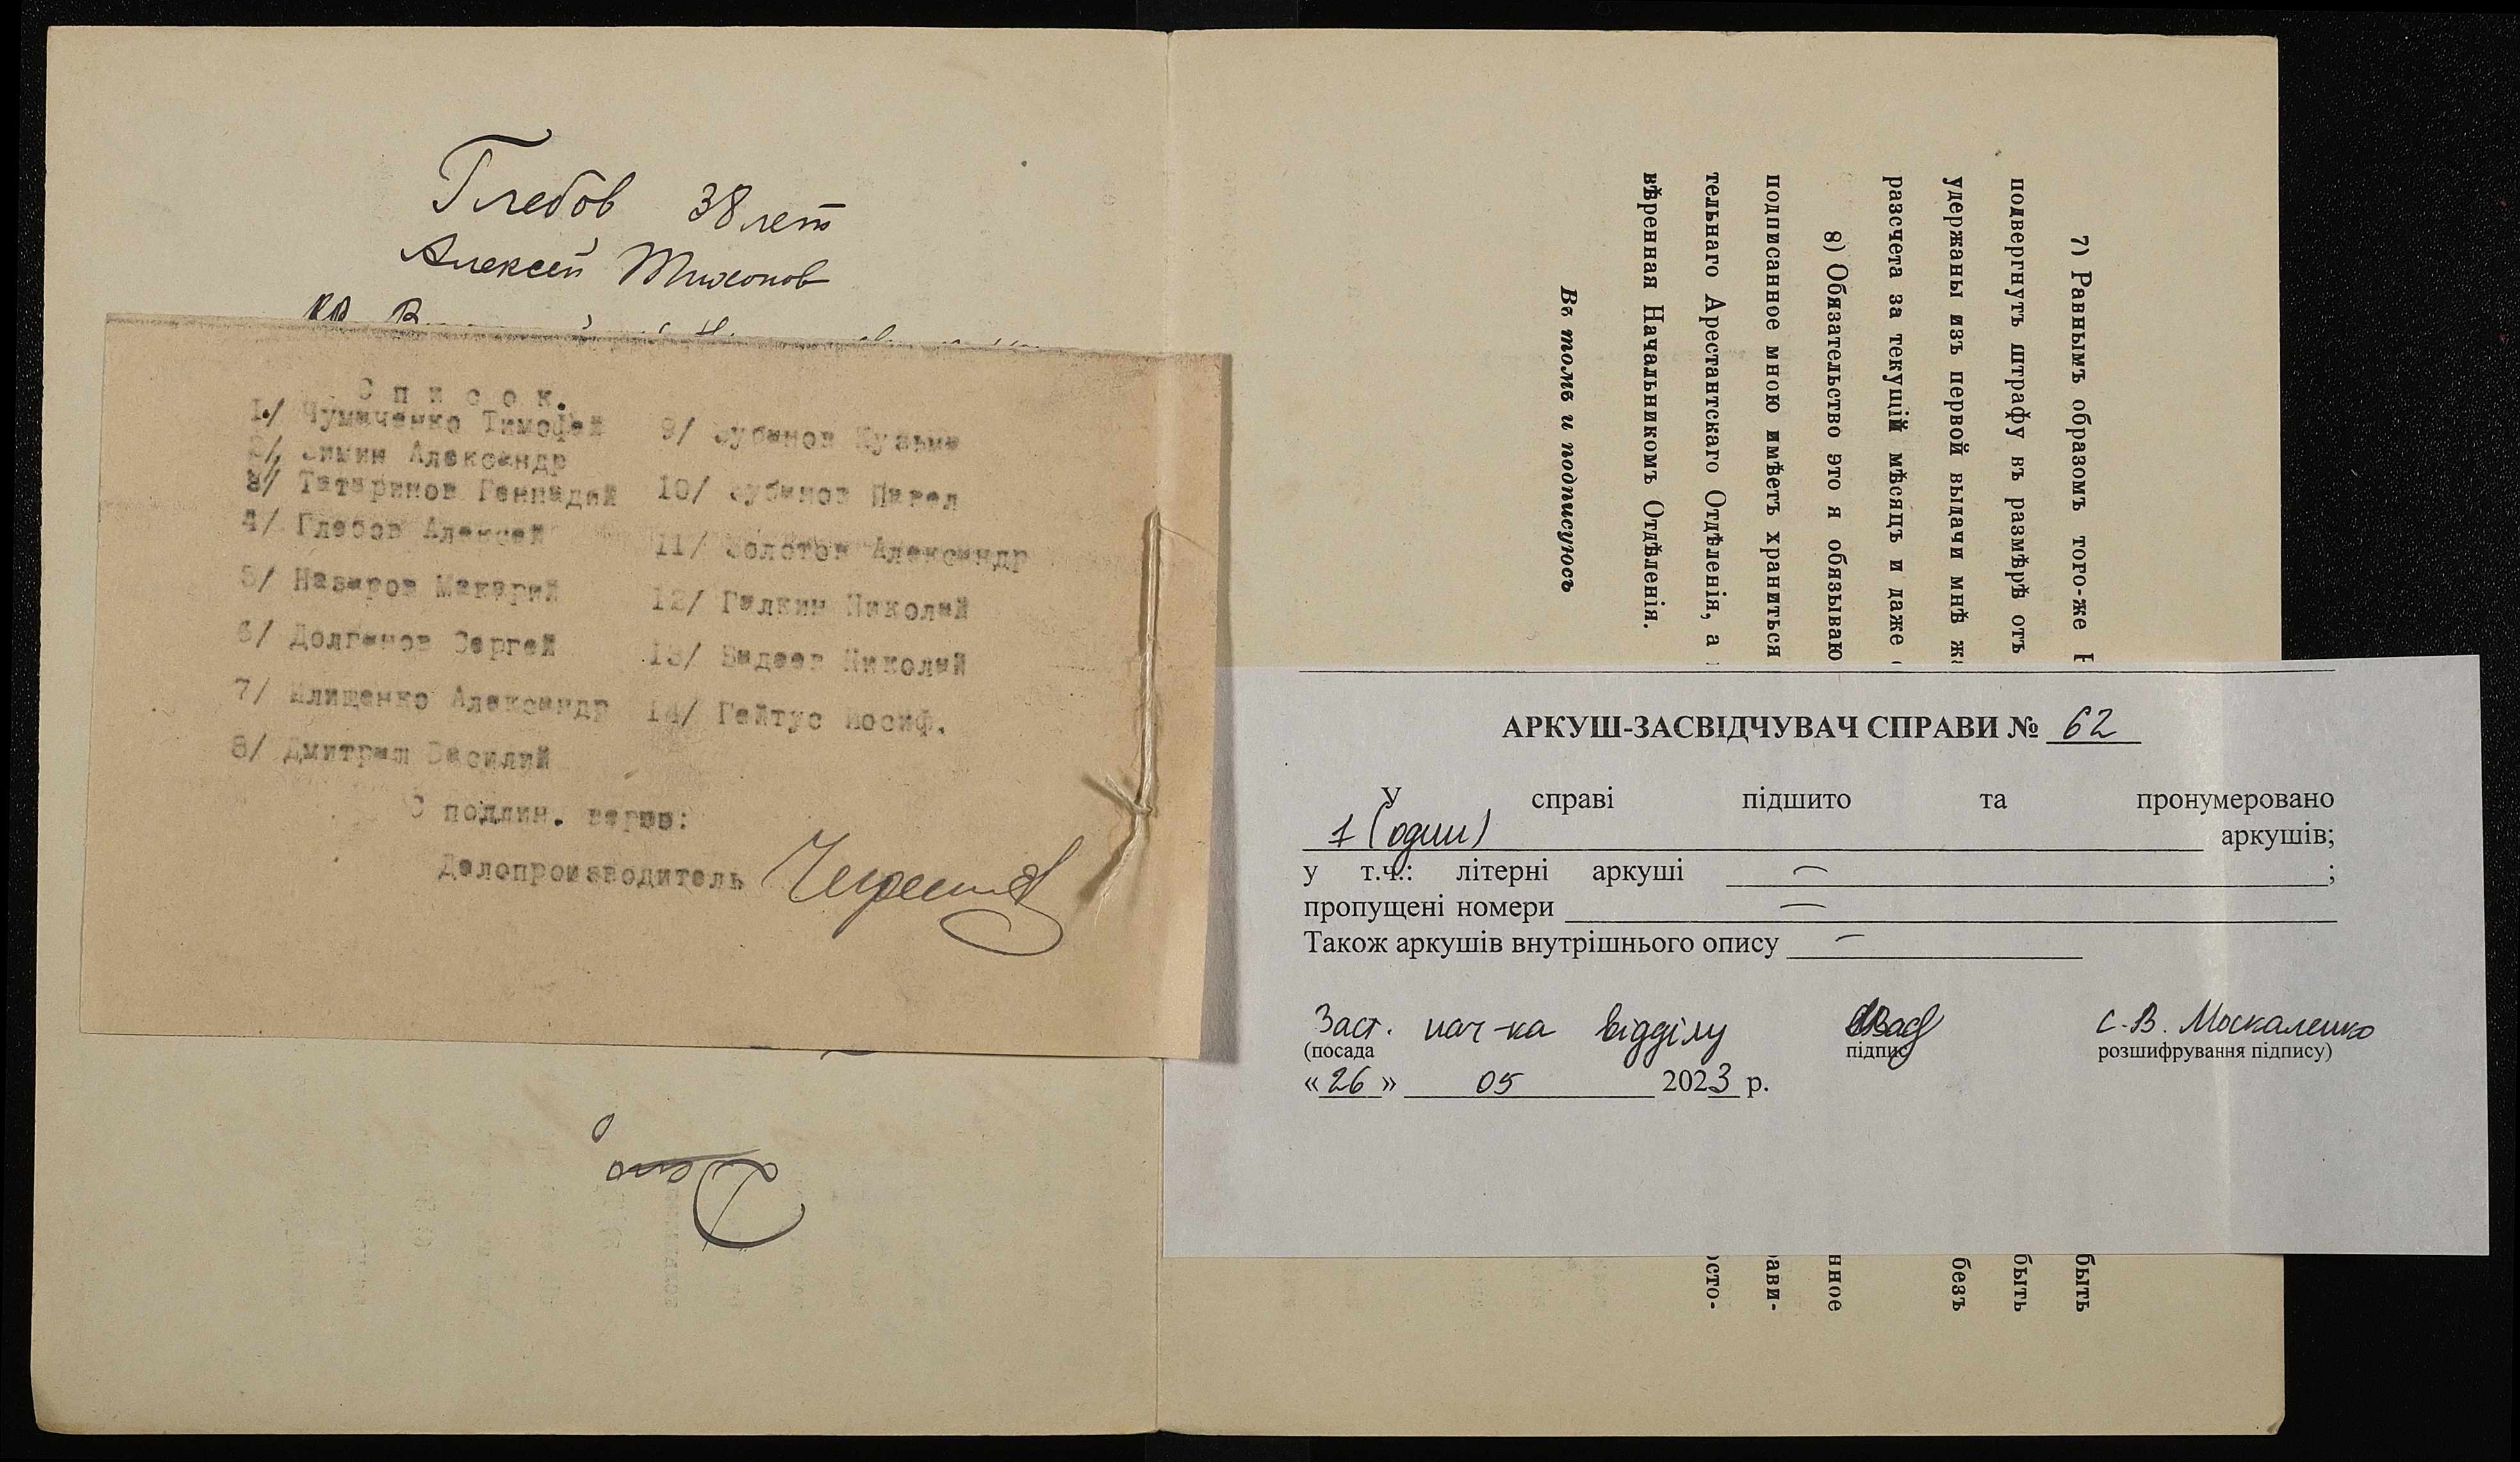 Глебов 38 лет
Алексей Тихонов
Список.
1/ Чумаченко Тимофей
2/ Зимин Александр
3/ Татаринов Геннадей
4/ Глебов Алексей
5/ Назаров Макарий
6/ Долганов Сергей
7/ Илищенко Александр
8/ Дмитраш Василий
9/ Зубанов Кузьма
10/ Зубанов Павел
11/ Золотов Александр
12/ Галкин Николай
13/ Бадеев Николай
14/ Гейтус Иосиф.
С подлин. верно:
Делопроизводитель
7) Равнымъ образомъ того-же
быть
подвергнутъ штрафу въ размѣрѣ отъ
быть
удержаны изъ первой выдачи мнѣ
безъ
разсчета за текущій мѣсяцъ и даже
8) Обязательство это я обязываю
нное
подписанное мною имѣетъ храниться
ави-
тельнаго Арестантскаго Отдѣленія, а
осто-
вѣренная Начальникомъ Отдѣленія.
Въ томъ и подписуюсь
АРКУШ-ЗАСВІДЧУВАЧ СПРАВИ № 62
У справі підшито та пронумеровано
1 (один) аркушів;
у т.ч.: літерні аркуші — ;
пропущені номери —
Також аркушів внутрішнього опису —
Заст. нач-ка відділу С.В. Москаленко
(посада підпис розшифрування підпису)
«26» 05 2023 р.